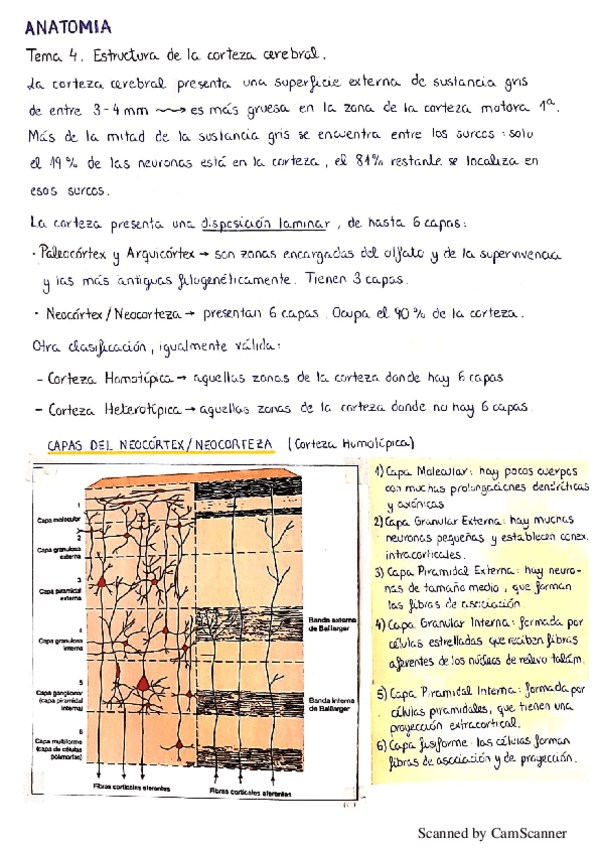 ANATOMIA
Tema 4. Estructura de la corteza cerebral.
La corteza cerebral presenta una superficie externa de sustancia gris
de entre 3-4 mm ⟿ es más gruesa en la zona de la corteza motora 1ª.
Más de la mitad de la sustancia gris se encuentra entre los surcos: solo
el 19% de las neuronas está en la corteza, el 81% restante se localiza en
esos surcos.
La corteza presenta una disposición laminar, de hasta 6 capas:
· Paleocórtex y Arquicórtex → son zonas encargadas del olfato y de la supervivencia
y las más antiguas filogenéticamente. Tienen 3 capas.
· Neocórtex/Neocorteza → presentan 6 capas. Ocupa el 90% de la corteza.
Otra clasificación, igualmente válida:
- Corteza Homotípica → aquellas zonas de la corteza donde hay 6 capas
- Corteza Heterotípica → aquellas zonas de la corteza donde no hay 6 capas.
CAPAS DEL NEOCÓRTEX/NEOCORTEZA (Corteza Homotípica)
1
Capa molecular
2
Capa granulosa
externa
3
Capa piramidal
externa
4
Capa granulosa
interna
5
Capa ganglionar
(capa piramidal
interna)
6
Capa multiforme
(capa de células
Banda externa
de Baillarger
Banda interna
de Baillarger
Fibras corticales aferentes
Fibras corticales eferentes
1) Capa Molecular: hay pocos cuerpos
con muchas prolongaciones dendríticas
y axónicas
2) Capa Granular Externa: hay muchas
neuronas pequeñas y establecen conex.
intracorticales.
3) Capa Piramidal Externa: hay neuro-
nas de tamaño medio, que forman
las fibras de asociación.
4) Capa Granular Interna: formada por
células estrelladas que reciben fibras
aferentes de los núcleos de relevo talám.
5) Capa Piramidal Interna: formada por
células piramidales, que tienen una
proyección extracortical.
6) Capa fusiforme: las células forman
fibras de asociación y de proyección.
Scanned by CamScanner